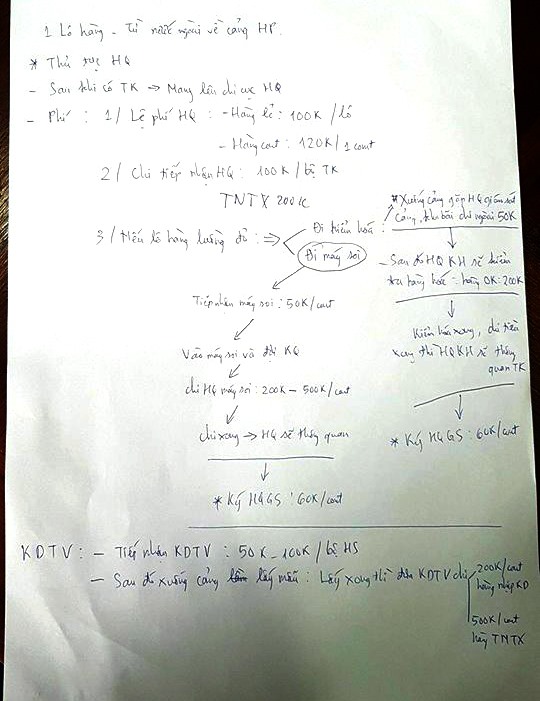 1 Lô hàng - Từ nước ngoài về cảng HP.
* Thủ tục HQ
- Sau khi có TK → Mang lên chi cục HQ
- Phí : 1/ Lệ phí HQ : - Hàng lẻ : 100K /lô
- Hàng cont : 120K/1 cont
2/ Chi tiếp nhận HQ : 100K / bộ TK
TNTX 200K
3/ Nếu lô hàng luồng đỏ : ⇒ Đi kiểm hoá :
Đi máy soi
Tiếp nhận máy soi : 50K/cont
Vào máy soi và đợi KQ
chi HQ máy soi : 200K - 500K/cont
chi xong → HQ sẽ thông quan
* Ký HQGS : 60K/cont
* Xuống cảng gặp HQ giám sát
cảng, kho bãi chi ngoài 50K
- Sau đó HQ KH sẽ kiểm
tra hàng hoá : hàng OK : 200K
Kiểm hoá xong, chi tiền
xong thì HQ KH sẽ thông
quan TK
* Ký HQGS : 60K/cont
KDTV : - Tiếp nhận KDTV : 50K - 100K / bộ HS
- Sau đó xuống cảng lấy mẫu : Lấy xong thì đưa KDTV chi
200K/cont
hàng nhập KD
500K/cont
hàng TNTX